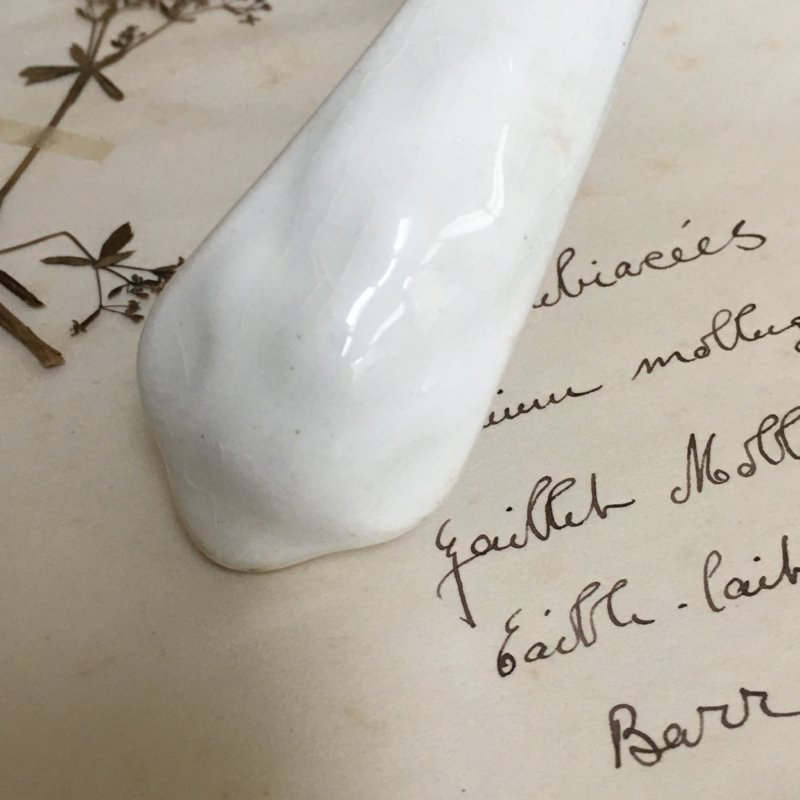 ubiacées
ium mollug
Gaillet Moll
Caille-lait
Barr